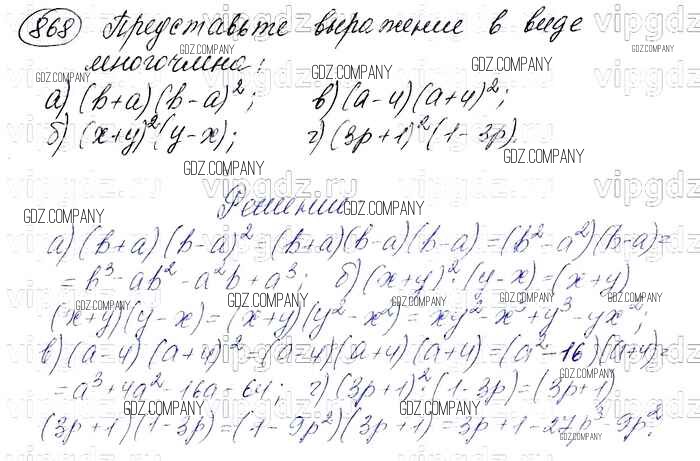 868 Представьте выражение в виде
многочлена:
а) (b+a)(b-a)²; в) (a-4)(a+4)²;
б) (x+y)²(y-x); г) (3p+1)²(1-3p).
Решение
а) (b+a)(b-a)² = (b+a)(b-a)(b-a) = (b²-a²)(b-a) =
= b³-ab²-a²b+a³; б) (x+y)²·(y-x) = (x+y)
(x+y)(y-x) = (x+y)(y²-x²) = xy²-x³+y³-yx²;
в) (a-4)(a+4)² = (a-4)(a+4)(a+4) = (a²-16)(a+4) =
= a³+4a²-16a-64; г) (3p+1)²(1-3p) = (3p+1)
(3p+1)(1-3p) = (1-9p²)(3p+1) = 3p+1-27p³-9p²
GDZ.COMPANY
vipgdz.ru